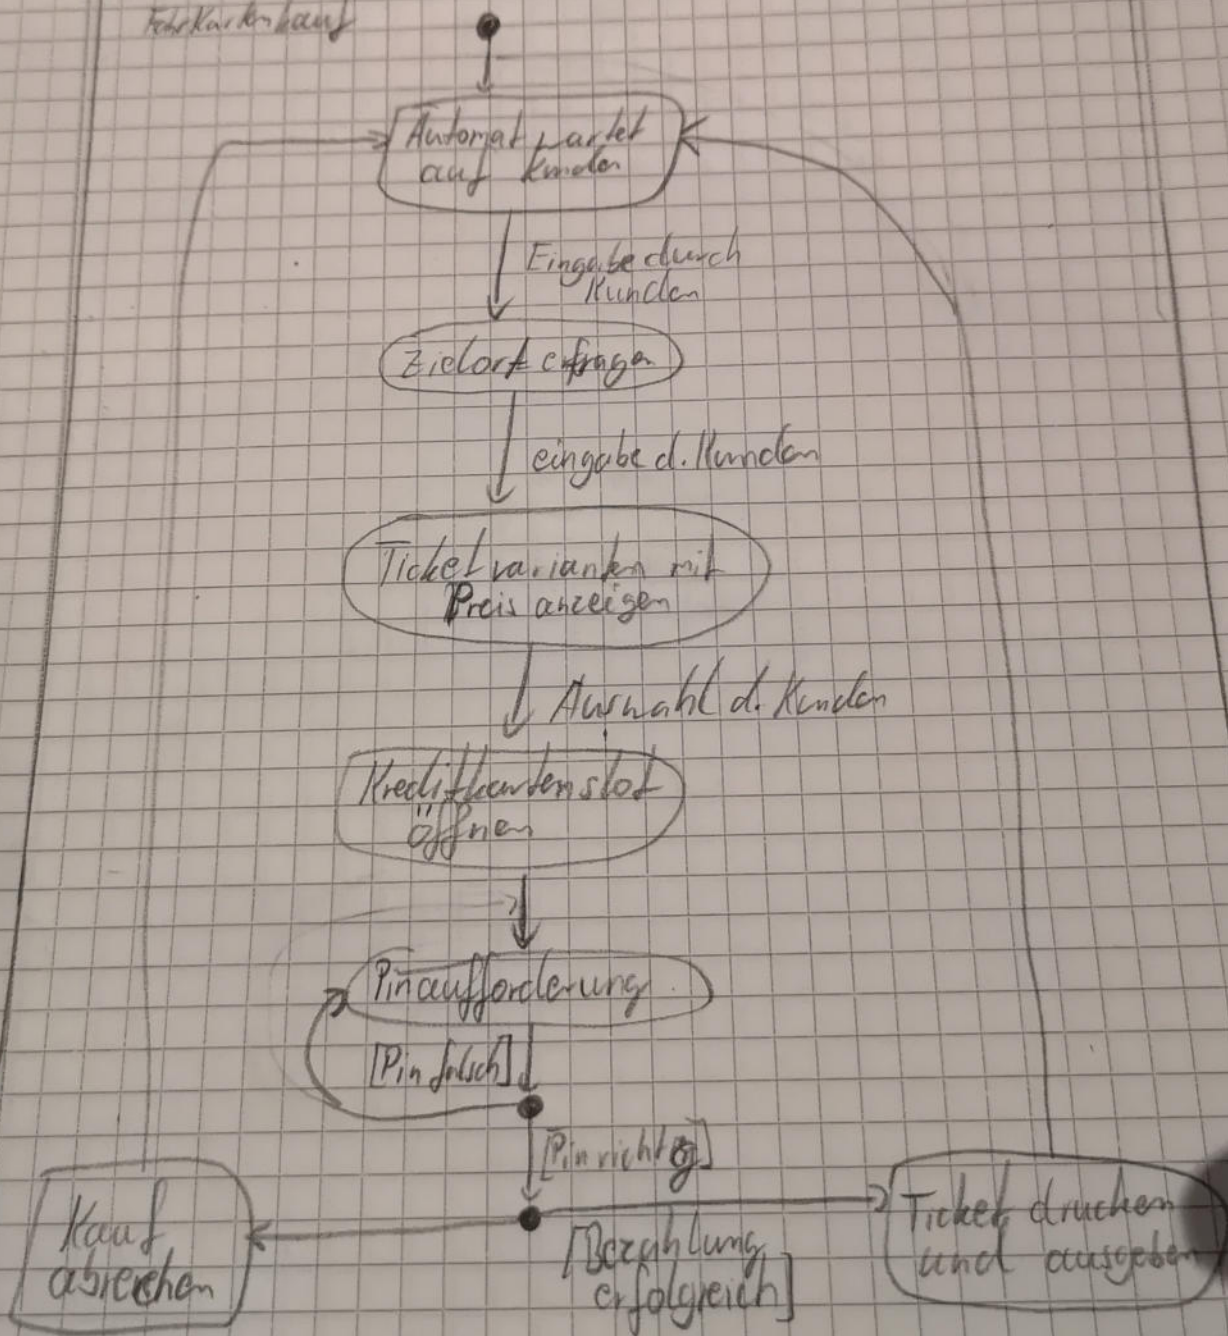 Fahrkartenkauf
Automat wartet
auf Kunden
Eingabe durch
Kunden
Zielort erfragen
eingabe d. Kunden
Ticketvarianten mit
Preis anzeigen
Auswahl d. Kunden
Kreditkartenslot
öffnen
Pinaufforderung
[Pin falsch]
[Pin richtig]
Kauf
abbrechen
[Bezahlung
erfolgreich]
Ticket drucken
und ausgeben